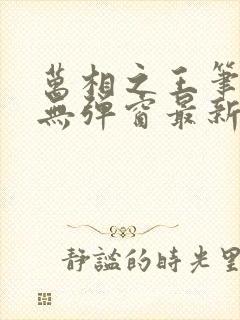 萬相之王筆
無彈窗最新
靜謐的時光里